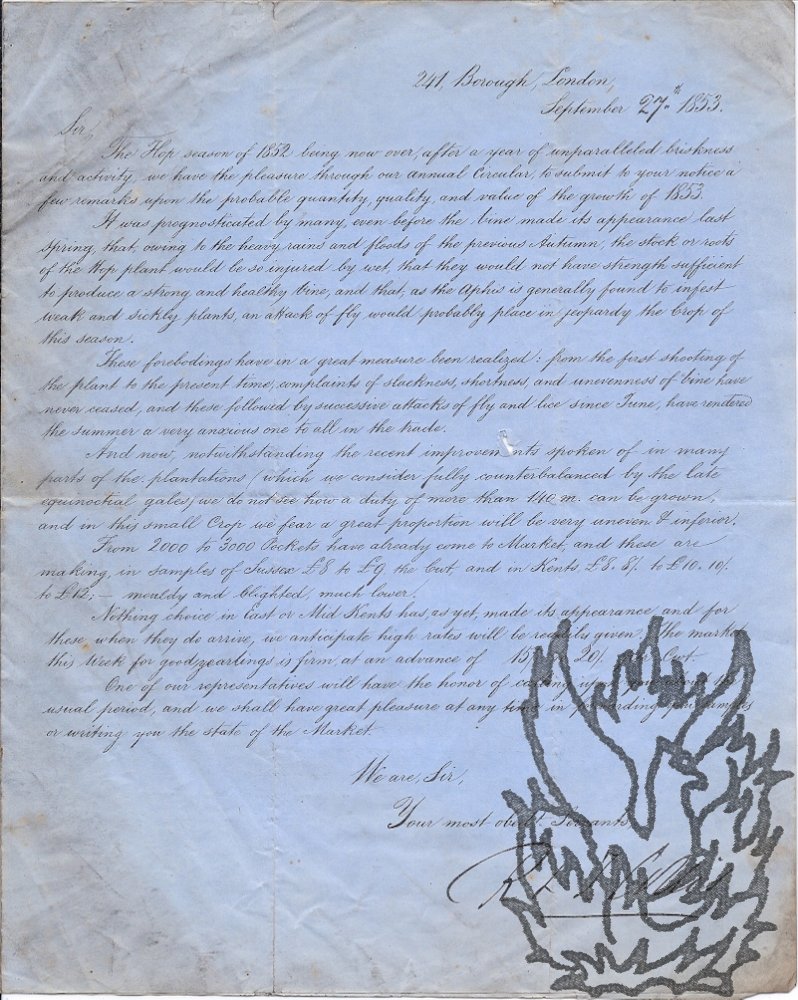 241, Borough, London,
September 27th 1853.
Sir,
The Hop season of 1852 being now over, after a year of unparalleled briskness
and activity, we have the pleasure through our annual Circular, to submit to your notice a
few remarks upon the probable quantity, quality, and value of the growth of 1853.
It was prognosticated by many, even before the bine made its appearance last
Spring, that, owing to the heavy rains and floods of the previous Autumn, the stock or roots
of the Hop plant would be so injured by wet, that they would not have strength sufficient
to produce a strong and healthy bine, and that, as the Aphis is generally found to infest
weak and sickly plants, an attack of fly would probably place in jeopardy the Crop of
this season.
These forebodings have in a great measure been realized: from the first shooting of
the plant to the present time, complaints of slackness, shortness, and unevenness of bine have
never ceased, and these followed by successive attacks of fly and lice since June, have rendered
the summer a very anxious one to all in the trade.
And now, notwithstanding the recent improvem nts spoken of in many
parts of the plantations (which we consider fully counterbalanced by the late
equinoctial gales) we do not see how a duty of more than 140 m. can be grown,
and in this small Crop we fear a great proportion will be very uneven & inferior.
From 2000 to 3000 Pockets have already come to Market, and these are
making, in samples of Sussex £8 to £9 the Cwt, and in Kents, £8. 8/. to £10. 10/.
to £12; — mouldy and blighted, much lower.
Nothing choice in East or Mid Kents has, as yet, made its appearance and for
these, when they do arrive, we anticipate high rates will be readily given. The market
this Week for good yearlings is firm, at an advance of 15/ 20/. Cwt.
One of our representatives will have the honor of calling upon you
usual period, and we shall have great pleasure at any time in forwarding you samples
or writing you the state of the Market.
We are, Sir,
Your most obedt. Servants,